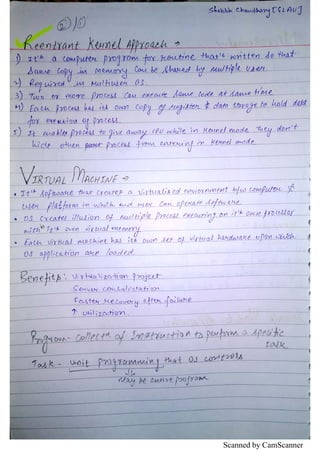 Shobhit Chaudhary [GLAU]
Reentrant Kernel Approach →
1) It's a computer program for routine that's written so that
Same copy in memory can be shared by multiple user.
2) Required in Multiuser OS.
3) Two or more process can execute same code at same time
4) Each process has its own copy of register & data storage to hold data
for execution of process.
5) It enables process to give away CPU while in kernel mode. They don't
other process from entering in Kernel mode
VIRTUAL MACHINE →
• It's software that creates a virtualised environment b/w computer &
user platform in which end user can operate software.
• OS creates illusion of multiple process executing on it's own processor
with it's own virtual memory
• Each virtual machine has its own set of virtual hardware upon which
OS application are loaded
Benefits: Virtualization Project
Server consolidation
Faster recovery after failure
↑ utilization.
Program - Collectn of Instruction to perform a specific
task
Task - unit programming that OS controls
↓
May be entire program
Scanned by CamScanner